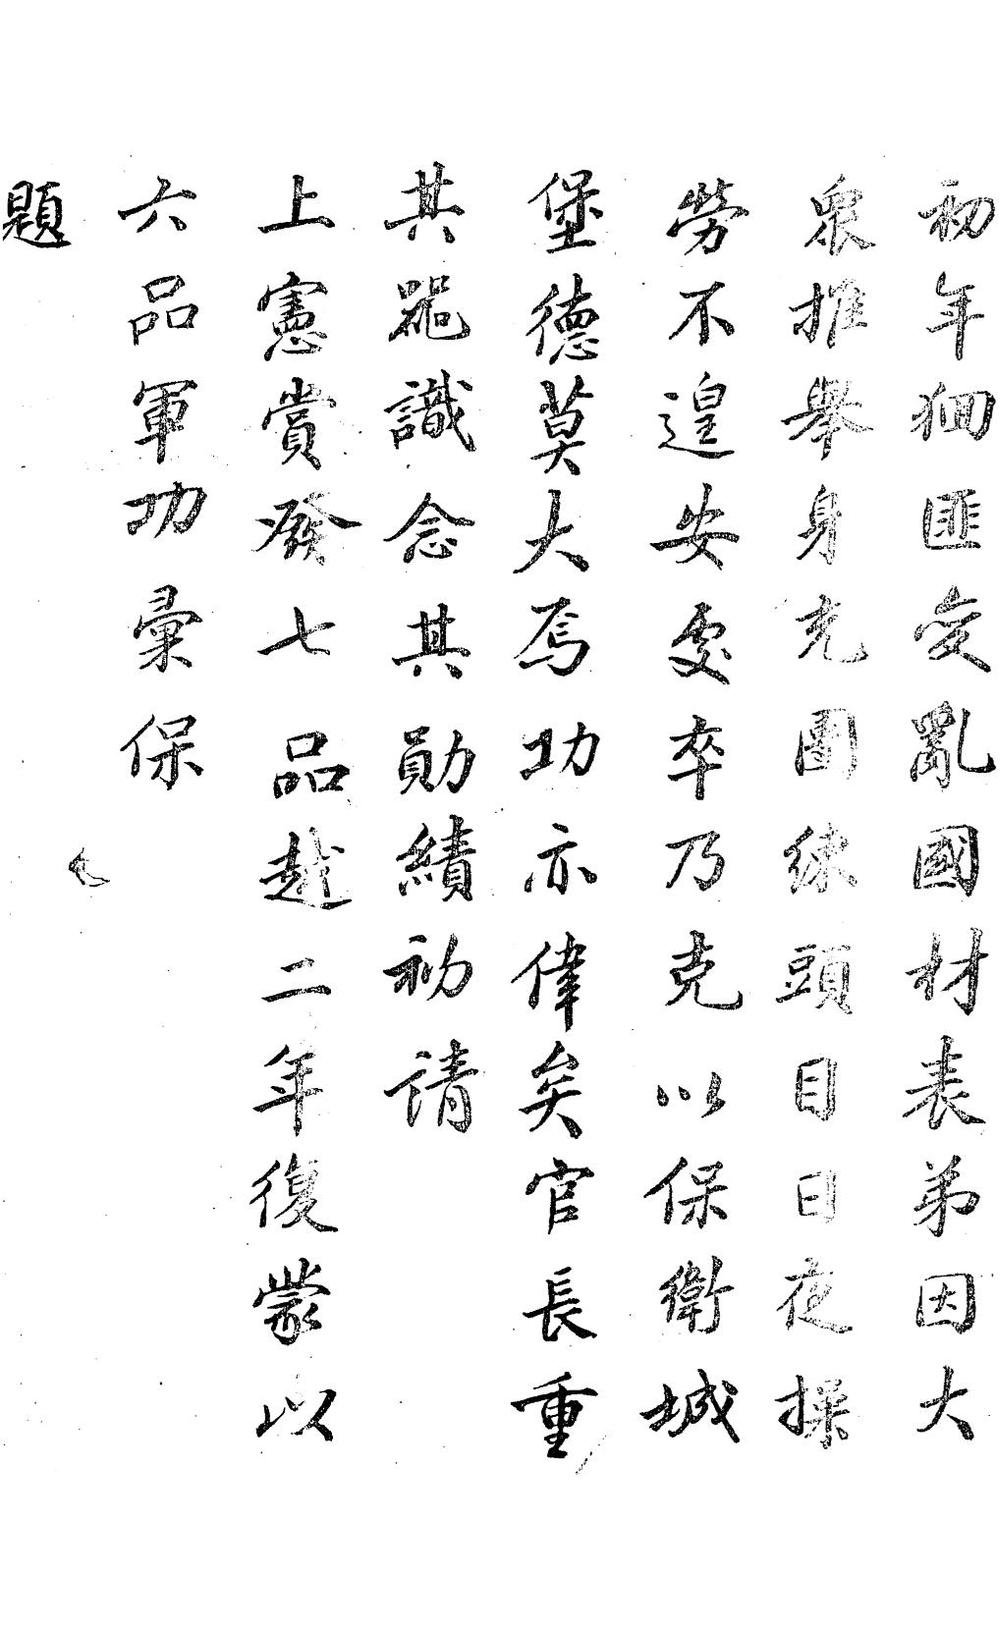 初年狪匪变亂國材表弟因大
衆推舉身充團練頭目日夜操
勞不遑安处卒乃克以保衛城
堡德莫大焉功亦偉矣官長重
其器識念其勛績初请
上憲賞發七品越二年復蒙以
六品軍功彙保
題